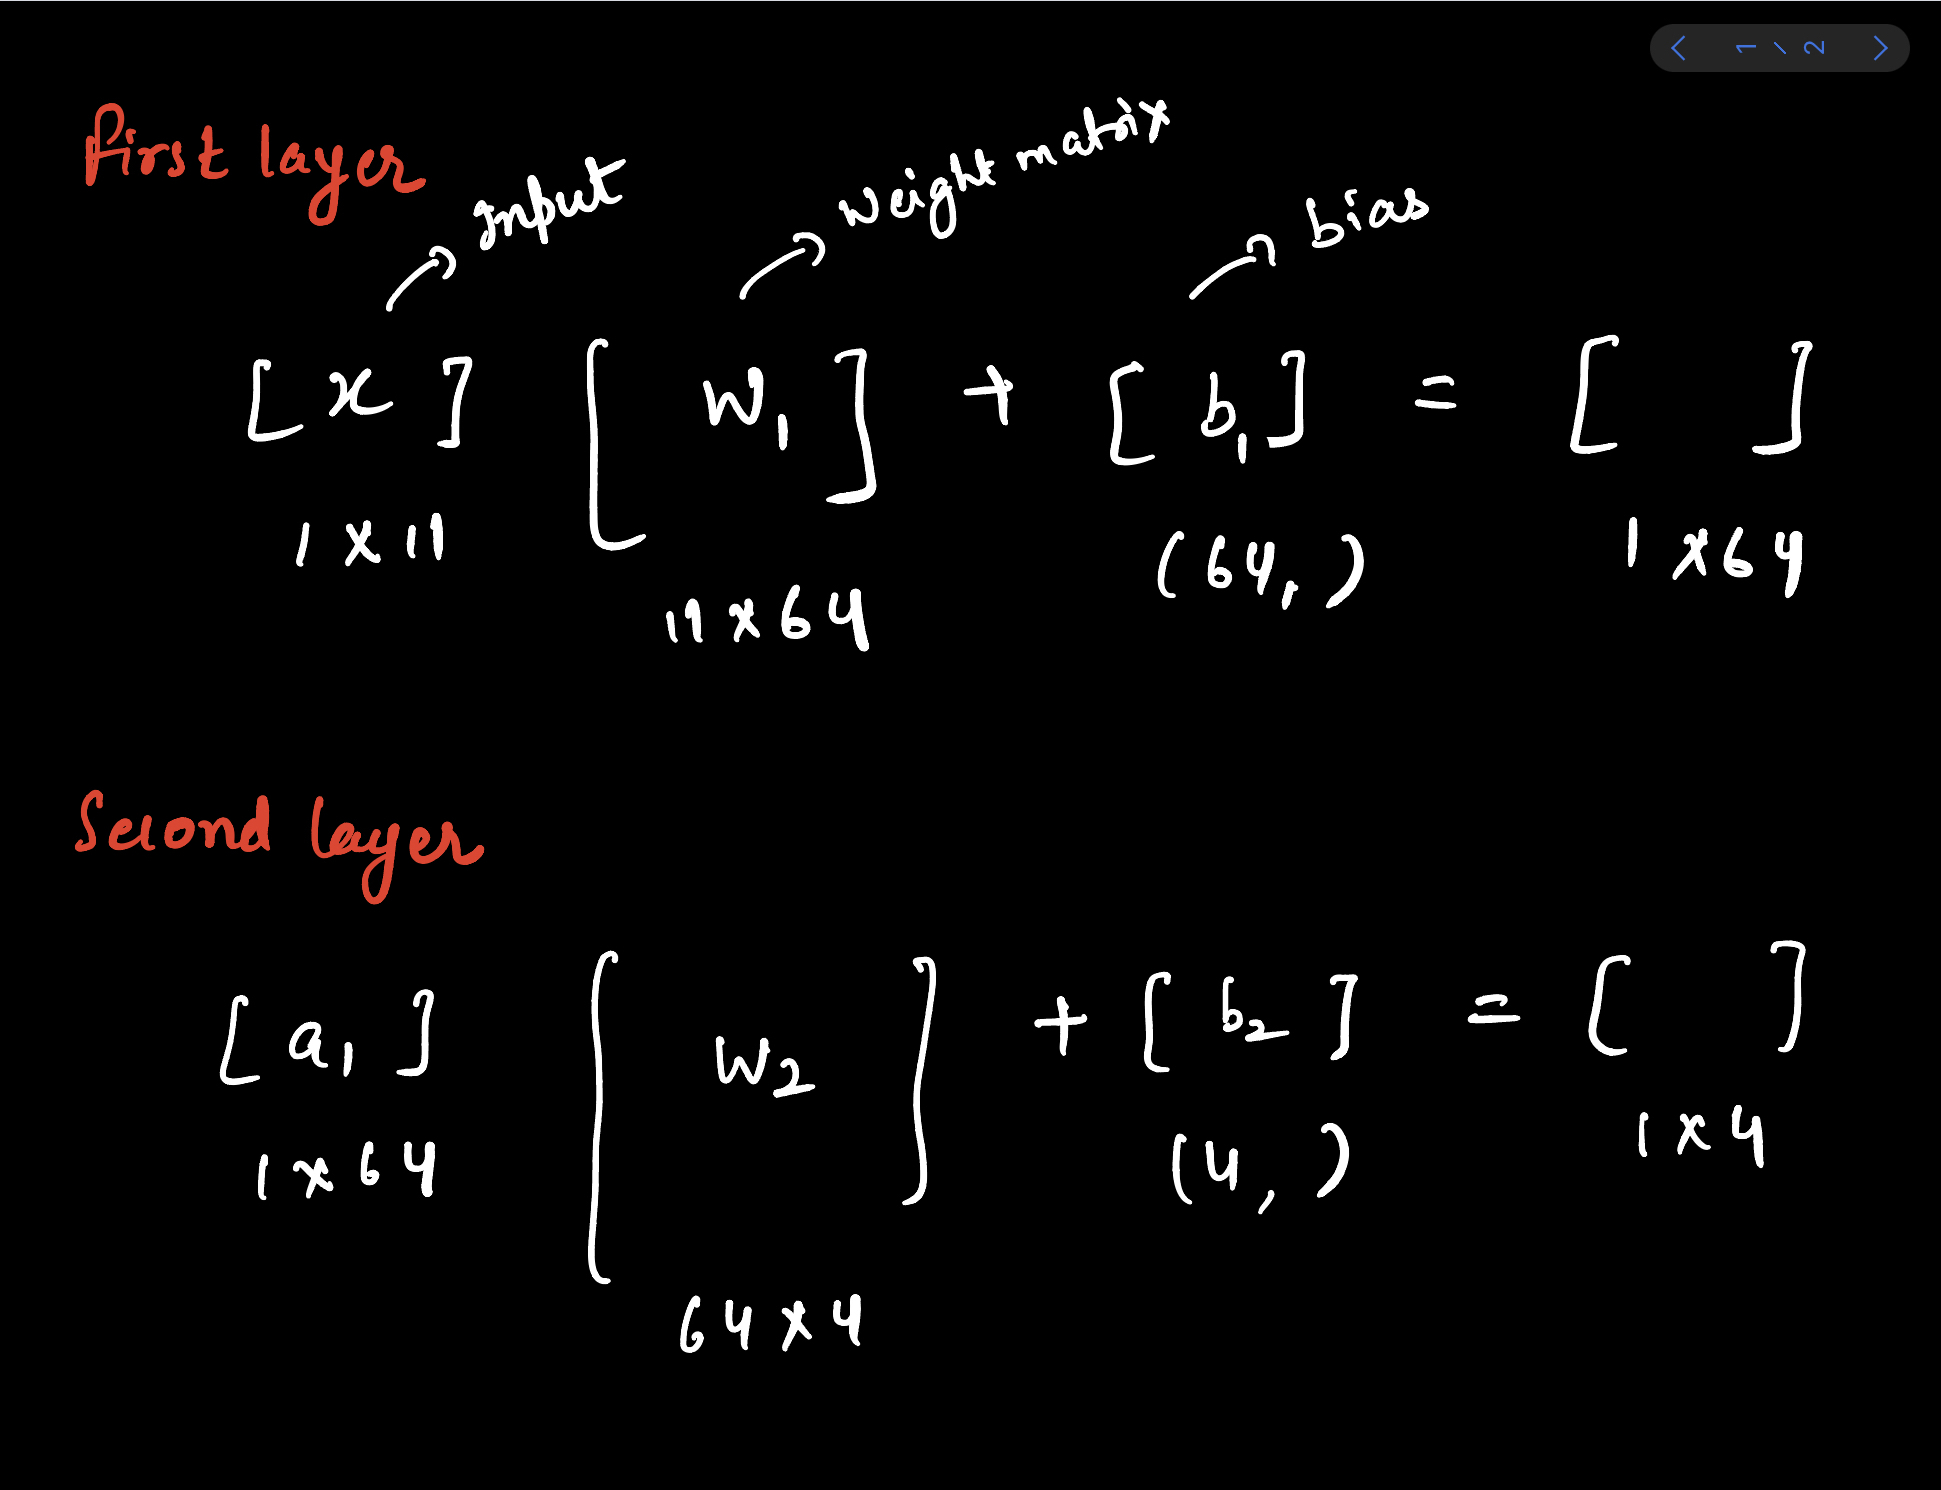 1 / 2
First layer
Input
Weight matrix
bias
[ x ] [ W₁ ] + [ b₁ ] = [ ]
1 x 11
11 x 64
(64, )
1 x 64
Second layer
[ a₁ ] [ W₂ ] + [ b₂ ] = [ ]
1 x 64
64 x 4
(4, )
1 x 4